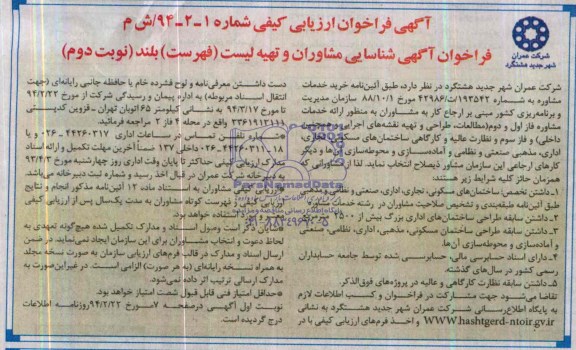 آگهی فراخوان ارزیابی کیفی شماره ۱-۲-۹۴/ش م
فراخوان آگهی شناسایی مشاوران و تهیه لیست (فهرست) بلند (نوبت دوم)
شرکت عمران
شهر جدید هشتگرد
شرکت عمران شهر جدید هشتگرد در نظر دارد، طبق آئین‌نامه خرید خدمات
مشاوره به شماره ۱۹۳۵۴۲/ت۴۲۹۸۶ مورخ ۸۸/۱۰/۱ سازمان مدیریت
و برنامه‌ریزی کشور مبنی بر ارجاع کار به مشاوران به منظور ارائه خدمات
مشاوره فاز اول و دوم(مطالعات، طراحی و تهیه نقشه‌های اجرایی
داخلی) و فاز سوم و نظارت عالیه و کارگاهی ساختمان‌های
اداری، مذهبی صنعتی و نظامی و آماده‌سازی و محوطه‌سازی آن‌ها و دیگر
کارهای ارجاعی این سازمان مشاور ذیصلاح انتخاب نماید. لذا از مشاورانی که
همزمان حائز کلیه شرایط زیر هستند:
۱-داشتن تخصص ساختمان‌های مسکونی، تجاری، اداری، صنعتی و نظامی
طبق آئین‌نامه طبقه‌بندی و تشخیص صلاحیت مشاوران در رشته خدمات مشاوره
۲-داشتن سابقه طراحی ساختمان‌های اداری بزرگ بیش از ۲۵۰۰
۳-داشتن سابقه طراحی ساختمان مسکونی، مذهبی، اداری، نظامی و صنعتی
و آماده‌سازی و محوطه‌سازی آن‌ها.
۴-دارای اسناد حسابرسی مالی، حسابرسی شده توسط جامعه حسابداران
رسمی کشور در سال‌های گذشته.
۵-داشتن سابقه نظارت کارگاهی و عالیه در پروژه‌های فوق‌الذکر.
تقاضا می‌شود جهت مشارکت در فراخوان و کسب اطلاعات لازم
به پایگاه اطلاع‌رسانی شرکت عمران شهر جدید هشتگرد به نشانی
WWW.hashtgerd-ntoir.gv.ir و اخذ فرم‌های ارزیابی کیفی با در
دست داشتن معرفی‌نامه و لوح فشرده خام یا حافظه جانبی رایانه‌ای (جهت
انتقال اسناد مربوطه) به اداره پیمان و رسیدگی شرکت از مورخ ۹۴/۲/۲۳
تا مورخ ۹۴/۳/۱۷ به نشانی کیلومتر ۶۵ اتوبان تهران - قزوین کدپستی
۳۳۶۱۹۱۳۱۱۱ واقع در محله ۴ فاز ۲ مراجعه فرمائید.
شماره تلفن تماس در ساعات اداری ۴۴۲۶۰۳۱۷-۰۲۶ و یا
۱۸-۴۴۲۶۰۳۱۱-۰۲۶ داخلی ۱۳۷ ضمناً آخرین مهلت تکمیل و ارائه اسناد
مدارک ارزیابی کیفی حداکثر تا پایان وقت اداری روز چهارشنبه مورخ ۹۴/۴/۳
به دبیرخانه شرکت عمران در قبال اخذ رسید و شماره ثبت دبیرخانه می‌باشد.
مشاوران به استناد ماده ۱۲ آئین‌نامه مذکور انجام و نتایج
فهرست کوتاه مشاوران به مدت یک‌سال پس از ارزیابی کیفی
استفاده خواهد بود.
وصول اسناد و مدارک تکمیل شده هیچ‌گونه تعهدی به
لحاظ دعوت و انتخاب مشاوران برای این سازمان ایجاد نمی‌نماید، در ضمن
ارسال اسناد و مدارک در قالب فرم‌های ارزیابی سازمان به صورت نسخه مجلد
به همراه نسخه رایانه‌ای (به هر صورت) الزامی است. در غیر این‌صورت به
مدارک ارسالی ترتیب اثر داده نمی‌شود.
حداقل امتیاز فنی قابل قبول شصت امتیاز خواهد بود.
نوبت اول آگهی در صفحه ۷ مورخ ۹۴/۲/۲۲ روزنامه اطلاعات
درج گردیده است.
ParsNamadData